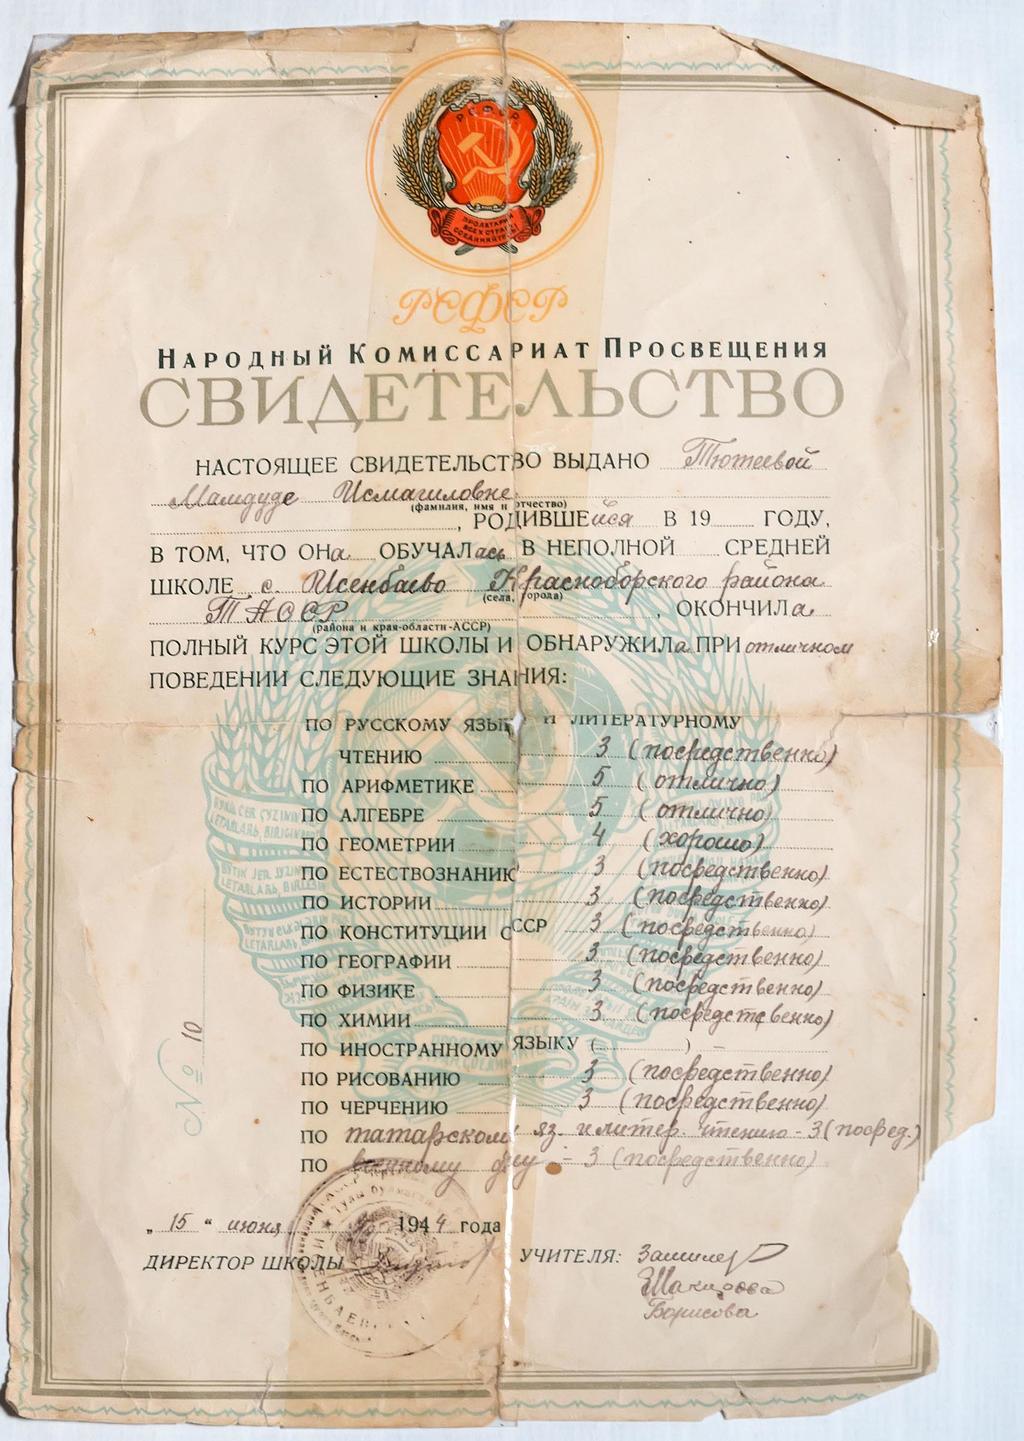 РСФСР
ПРОЛЕТАРИИ
ВСЕХ СТРАН
СОЕДИНЯЙТЕСЬ
РСФСР
НАРОДНЫЙ КОМИССАРИАТ ПРОСВЕЩЕНИЯ
СВИДЕТЕЛЬСТВО
НАСТОЯЩЕЕ СВИДЕТЕЛЬСТВО ВЫДАНО Тютеевой
Мамдуде Исмагиловне
(фамилия, имя и отчество)
, РОДИВШЕйся В 19 ГОДУ,
В ТОМ, ЧТО ОНа ОБУЧАЛАсь В НЕПОЛНОЙ СРЕДНЕЙ
ШКОЛЕ с. Исенбаево Красноборского района
(села, города)
ТАССР , ОКОНЧИЛа
(района и края-области-АССР)
ПОЛНЫЙ КУРС ЭТОЙ ШКОЛЫ И ОБНАРУЖИЛа ПРИ отличном
ПОВЕДЕНИИ СЛЕДУЮЩИЕ ЗНАНИЯ:
ПО РУССКОМУ ЯЗЫК И ЛИТЕРАТУРНОМУ
ЧТЕНИЮ 3 (посредственно)
ПО АРИФМЕТИКЕ 5 (отлично)
ПО АЛГЕБРЕ 5 (отлично)
ПО ГЕОМЕТРИИ 4 (хорошо)
ПО ЕСТЕСТВОЗНАНИЮ 3 (посредственно)
ПО ИСТОРИИ 3 (посредственно)
ПО КОНСТИТУЦИИ СССР 3 (посредственно)
ПО ГЕОГРАФИИ 3 (посредственно)
ПО ФИЗИКЕ 3 (посредственно)
ПО ХИМИИ 3 (посредственно)
ПО ИНОСТРАННОМУ ЯЗЫКУ ( )
ПО РИСОВАНИЮ 3 (посредственно)
ПО ЧЕРЧЕНИЮ 3 (посредственно)
ПО татарскому яз. и литер. чтению - 3 (посред.)
ПО военному делу - 3 (посредственно)
№ 10
„15" июня 1944 года
ДИРЕКТОР ШКОЛЫ
УЧИТЕЛЯ:
Борисова